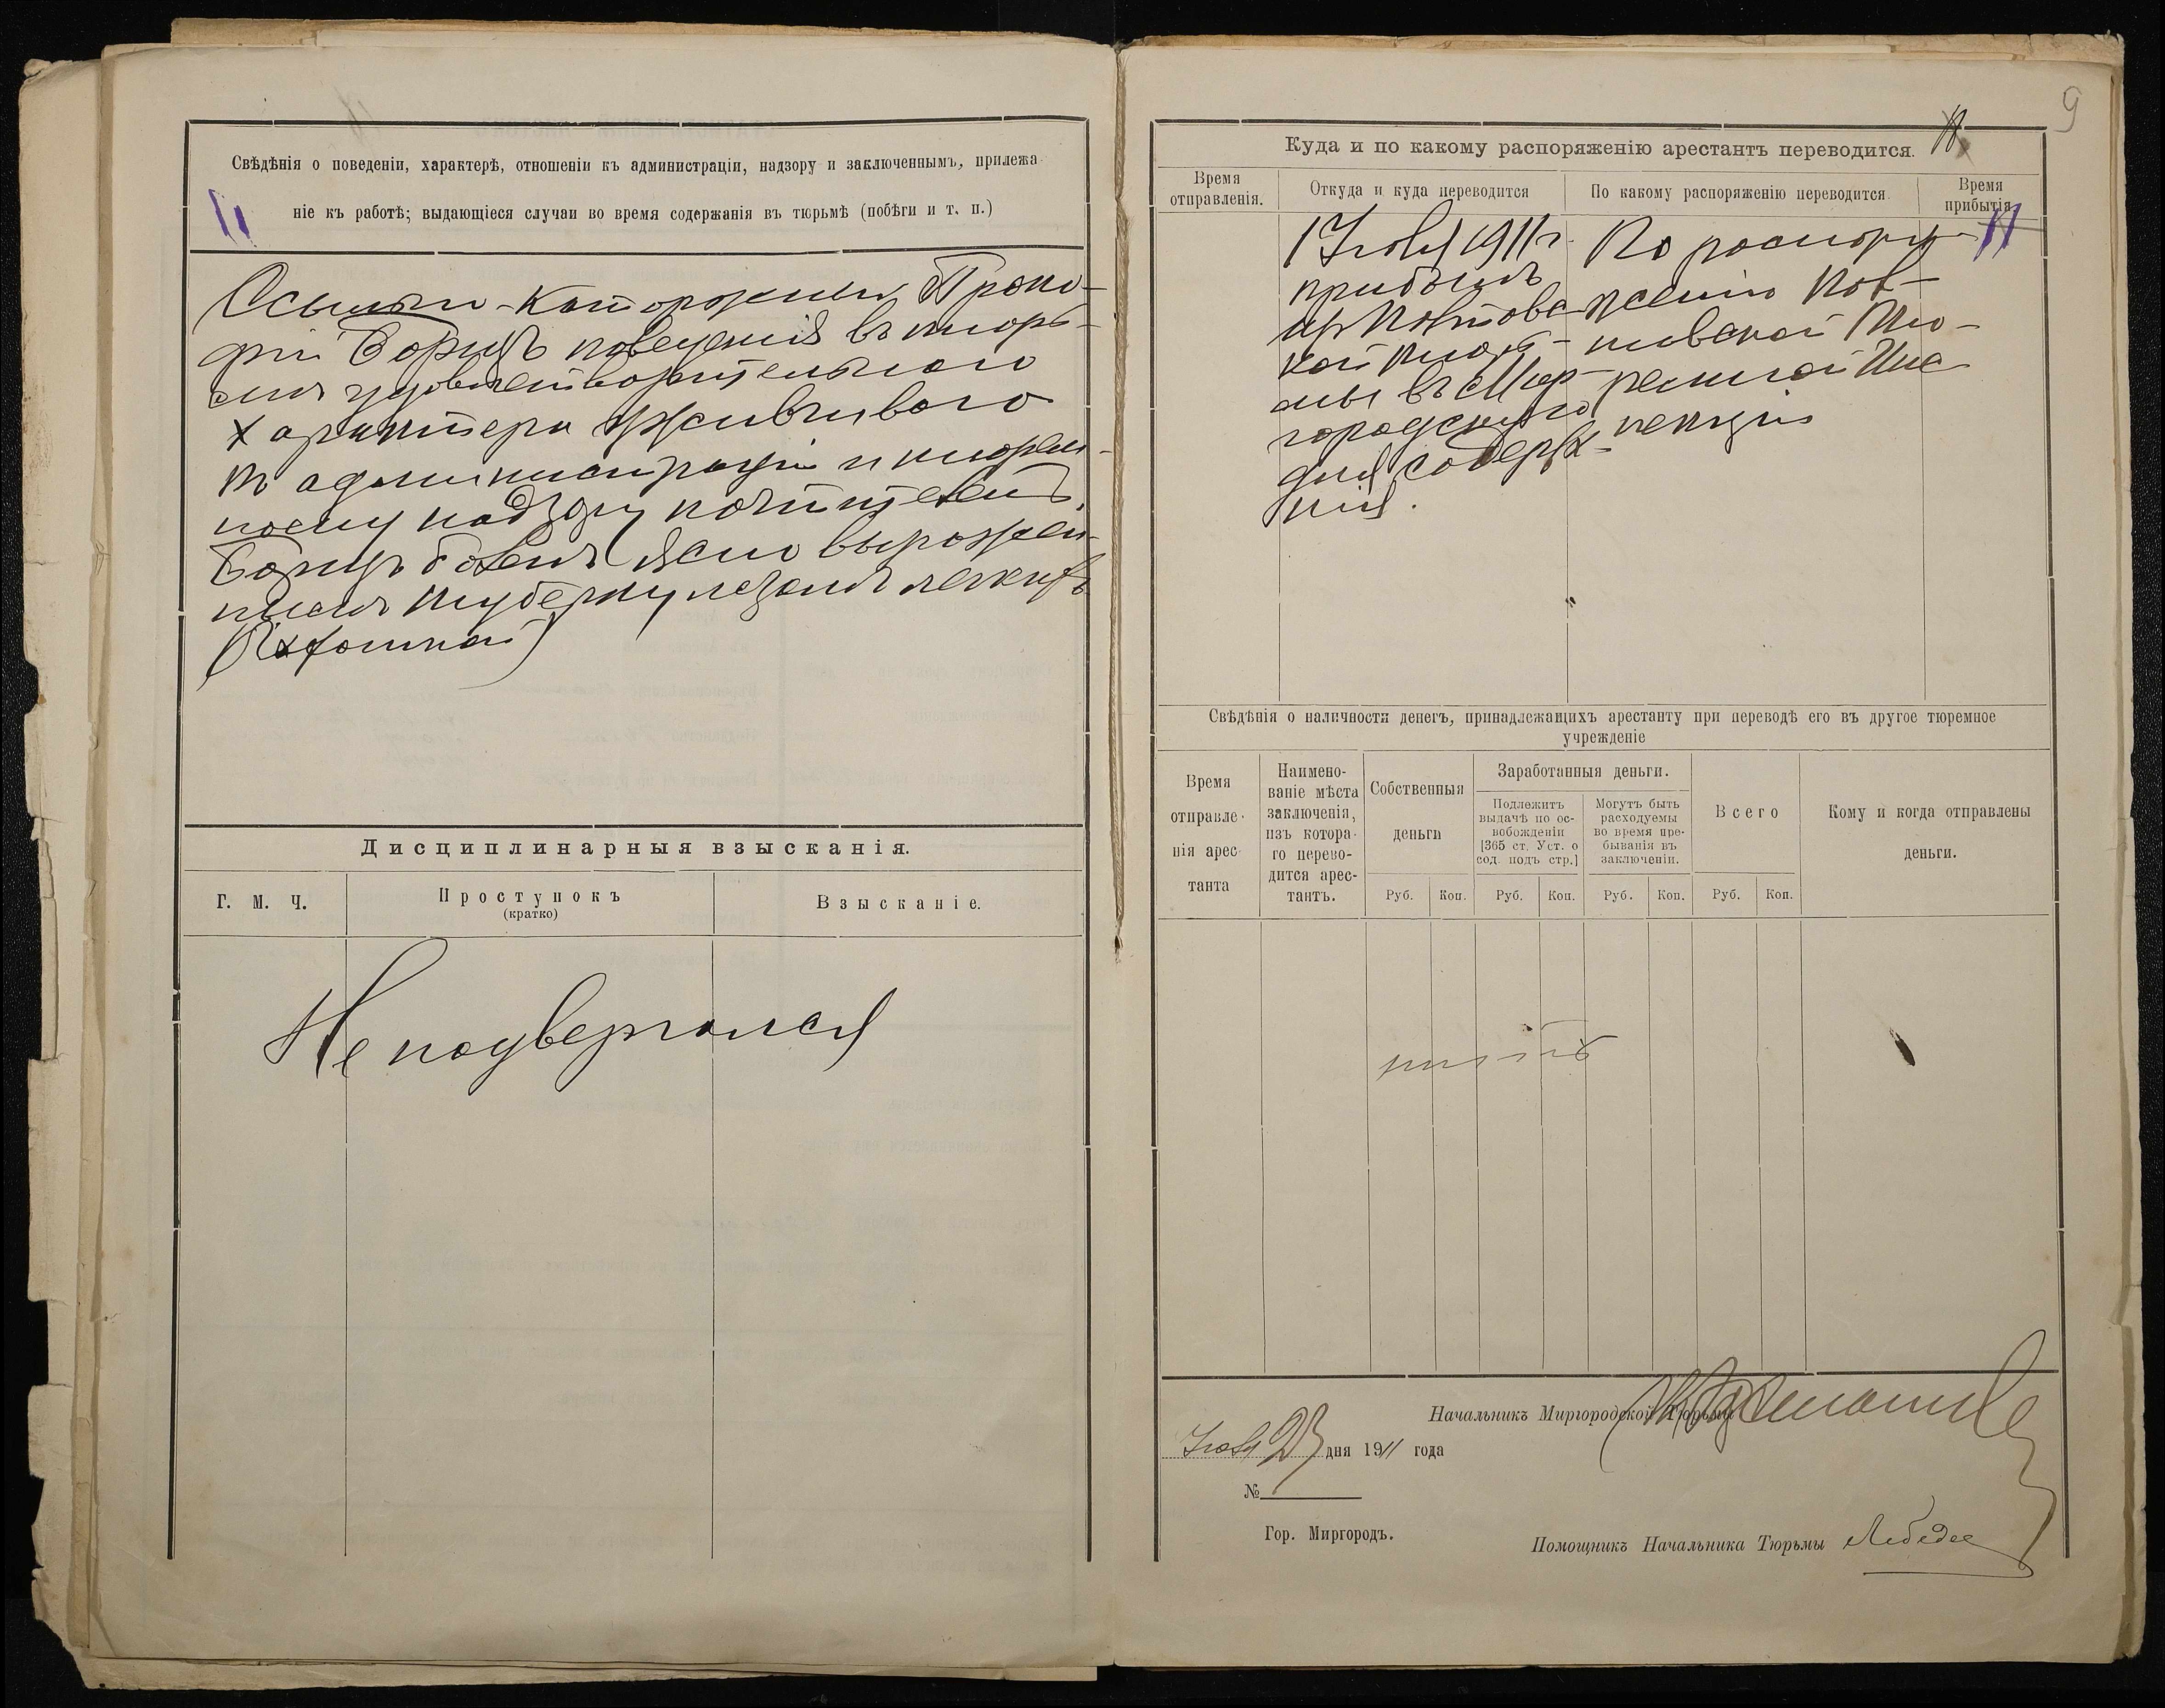 Свѣдѣнія о поведеніи, характерѣ, отношеніи къ администраціи, надзору и заключеннымъ, прилежа-
ніе къ работѣ; выдающіеся случаи во время содержанія въ тюрьмѣ (побѣги и т. п.)
11
Ссыльно-каторжный Проко-
фій Борецъ поведенія въ тюрь-
мѣ удовлетворительнаго
характера уживчиваго
къ администраціи и тюрем-
ному надзору почтителенъ.
Борецъ боленъ ясно выражен-
нымъ туберкулезомъ легкихъ
(Чахоткой)
Дисциплинарныя взысканія.
Г. М. Ч.
Проступокъ
(кратко)
Взысканіе.
Не подвергался
9
Куда и по какому распоряженію арестантъ переводится.
Время
отправленія.
Откуда и куда переводится
По какому распоряженію переводится
Время
прибытія
11
1 Іюля 1911 г.
прибылъ
изъ Полтавс-
кой тюрь-
мы въ Мир-
городскую
для содержа-
нія.
По распоря-
женію Пол-
тавской Тю-
ремной Инс-
пекціи
Свѣдѣнія о наличности денегъ, принадлежащихъ арестанту при переводѣ его въ другое тюремное
учрежденіе
Время
отправле-
нія арес-
танта
Наимено-
ваніе мѣста
заключенія,
изъ котора-
го перево-
дится арес-
тантъ.
Собственныя
деньги
Заработанныя деньги.
Подлежитъ
выдачѣ по ос-
вобожденіи
[365 ст. Уст. о
сод. подъ стр.]
Могутъ быть
расходуемы
во время пре-
быванія въ
заключеніи.
Всего
Кому и когда отправлены
деньги.
Руб. Коп. Руб. Коп. Руб. Коп. Руб. Коп.
Начальникъ Миргородской Тюрьмы
Іюля 23 дня 1911 года
№
Гор. Миргородъ.
Помощникъ Начальника Тюрьмы Лебедев